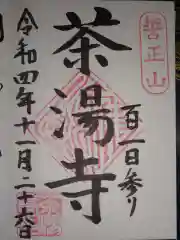 誓正山
百一日参り
茶湯寺
令和四年十一月二十六日